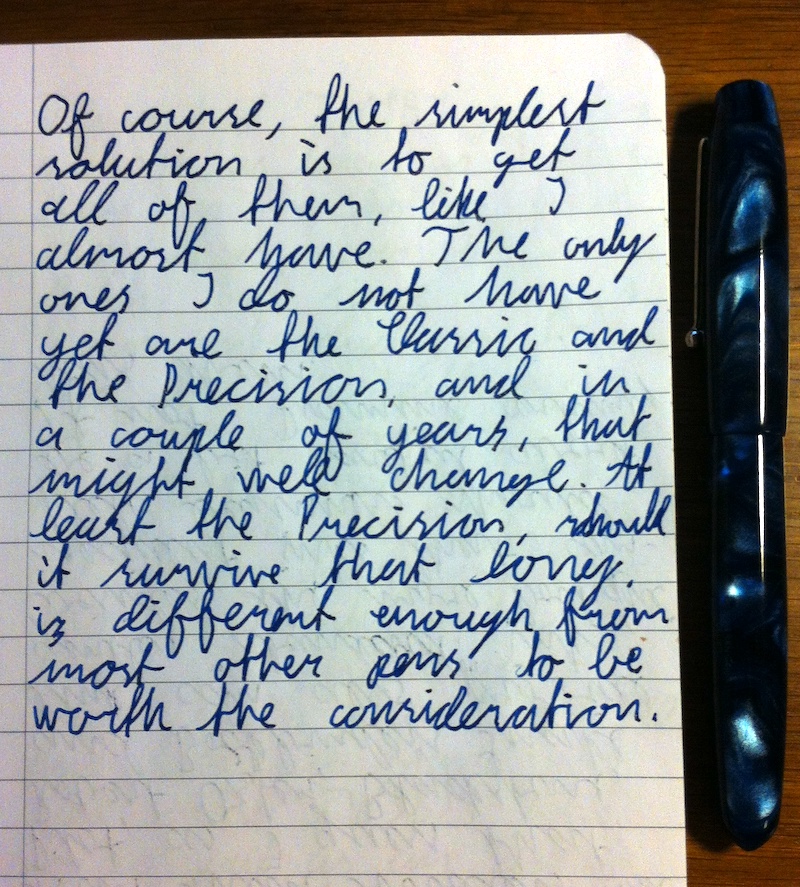 Of course, the simplest
solution is to get
all of them, like I
almost have. The only
ones I do not have
yet are the Classic and
the Precision, and in
a couple of years, that
might well change. At
least the Precision, should
it survive that long,
is different enough from
most other pens to be
worth the consideration.